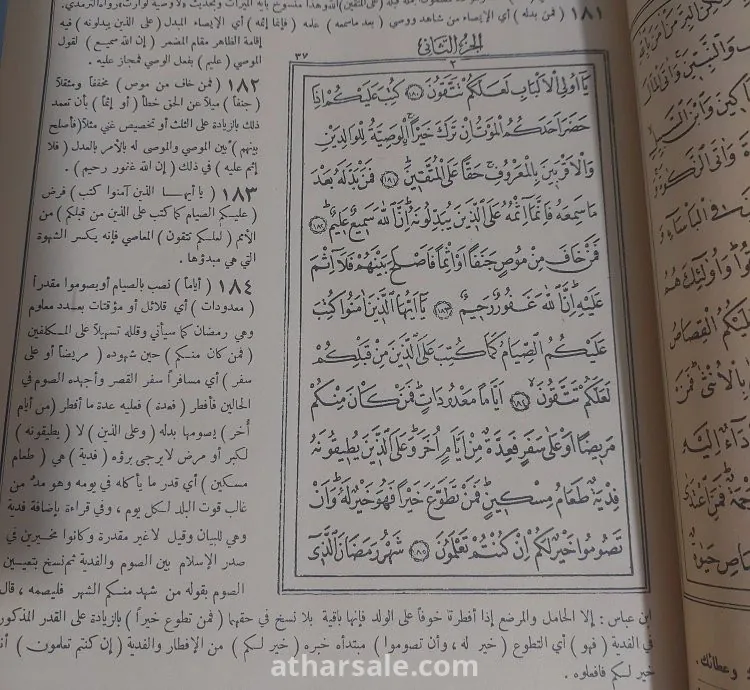 ١٨١ ( فمن بدله ) أي الإيصاء من شاهد ووصي ( بعد ماسمعه ) علمه ( فإنما إثمه ) أي الإيصاء المبدل ( على الذين يبدلونه ) فيه
الجزء الثاني
٣٧
٢
يَا أُولِي الْأَلْبَابِ لَعَلَّكُمْ تَتَّقُونَ ١٨٠ كُتِبَ عَلَيْكُمْ إِذَا
حَضَرَ أَحَدَكُمُ الْمَوْتُ إِنْ تَرَكَ خَيْرًا الْوَصِيَّةُ لِلْوَالِدَيْنِ
وَالْأَقْرَبِينَ بِالْمَعْرُوفِ حَقًّا عَلَى الْمُتَّقِينَ ١٨١ فَمَنْ بَدَّلَهُ بَعْدَ
مَا سَمِعَهُ فَإِنَّمَا إِثْمُهُ عَلَى الَّذِينَ يُبَدِّلُونَهُ إِنَّ اللَّهَ سَمِيعٌ عَلِيمٌ ١٨٢
فَمَنْ خَافَ مِنْ مُوصٍ جَنَفًا أَوْ إِثْمًا فَأَصْلَحَ بَيْنَهُمْ فَلَا إِثْمَ
عَلَيْهِ إِنَّ اللَّهَ غَفُورٌ رَحِيمٌ ١٨٣ يَا أَيُّهَا الَّذِينَ آمَنُوا كُتِبَ
عَلَيْكُمُ الصِّيَامُ كَمَا كُتِبَ عَلَى الَّذِينَ مِنْ قَبْلِكُمْ
لَعَلَّكُمْ تَتَّقُونَ ١٨٤ أَيَّامًا مَعْدُودَاتٍ فَمَنْ كَانَ مِنْكُمْ
مَرِيضًا أَوْ عَلَى سَفَرٍ فَعِدَّةٌ مِنْ أَيَّامٍ أُخَرَ وَعَلَى الَّذِينَ يُطِيقُونَهُ
فِدْيَةٌ طَعَامُ مِسْكِينٍ فَمَنْ تَطَوَّعَ خَيْرًا فَهُوَ خَيْرٌ لَهُ وَأَنْ
تَصُومُوا خَيْرٌ لَكُمْ إِنْ كُنْتُمْ تَعْلَمُونَ ١٨٥ شَهْرُ رَمَضَانَ الَّذِي
إقامة الظاهر مقام المضمر ( إن الله سميع ) لقول
الموصي ( عليم ) بفعل الوصي فمجاز عليه .
١٨٢ ( فمن خاف من موص ) مخففاً ومثقلاً
( جنفاً ) ميلاً عن الحق خطأ ( أو إثماً ) بأن تعمد
ذلك بالزيادة على الثلث أو تخصيص غني مثلاً ( فأصلح
بينهم ) بين الموصي والموصى له بالأمر بالعدل ( فلا
إثم عليه ) في ذلك ( إن الله غفور رحيم ) .
١٨٣ ( يا أيهـا الذين آمنوا كتب ) فرض
( عليـكم الصيام كما كتب على الذين من قبلكم ) من
الأمم ( لعلكم تتقون ) المعاصي فإنه يكسر الشهوة
التي هي مبدؤها .
١٨٤ ( أياماً ) نصب بالصيام أو بصوموا مقدراً
( معدودات ) أي قلائل أو مؤقتات بعـدد معلوم
وهي رمضان كما سيأتي وقلله تسهيلاً على المـكلفين
( فمن كان منـكم ) حين شهوده ( مريضاً أو على
سفر ) أي مسافراً سفر القصر وأجهده الصوم في
الحالين فأفطر ( فعدة ) فعليه عدة ما أفطر ( من أيام
أُخر ) يصومها بدله ( وعلى الذين ) لا ( يطيقونه )
لكبر أو مرض لا يرجى برؤه ( فدية ) هي ( طعام
مسكين ) أي قدر ما يأكله في يومه وهو مدّ من
غالب قوت البلد لـكل يوم ، وفي قراءة بإضافة فدية
وهي للبيان وقيل لا غير مقدرة وكانوا مخيرين في
صدر الإسلام بين الصوم والفدية ثم نسخ بتعيـين
الصوم بقوله من شهد منـكم الشهر فليصمه ، قال
ابن عباس : إلا الحامل والمرضع إذا أفطرتا خوفاً على الولد فإنها باقية بلا نسخ في حقهما ( فمن تطوع خيراً ) بالزيادة على القدر المذكور
في الفدية ( فهو ) أي التطوع ( خير له ، وأن تصوموا ) مبتدأه خبره ( خير لـكم ) من الإفطار والفدية ( إن كنتم تعلمون ) أنه
خير لـكم فافعلوه .
atharsale.com